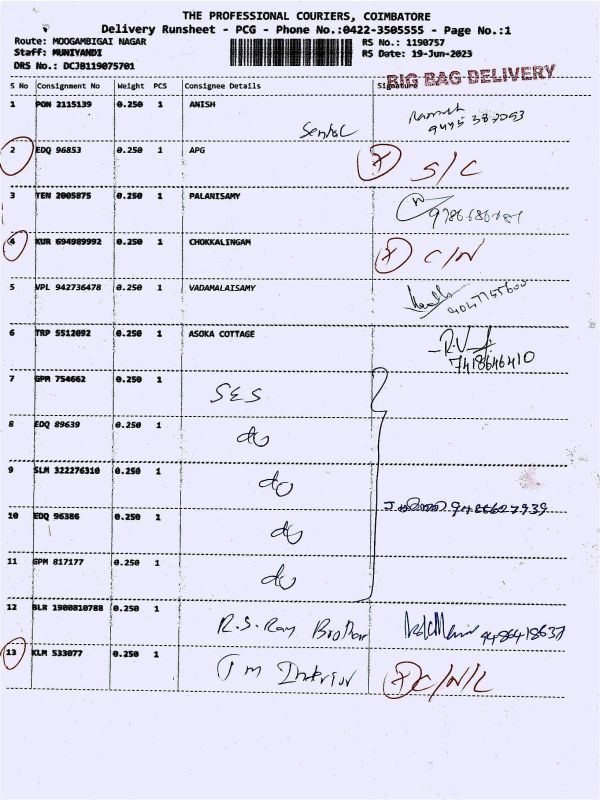 THE PROFESSIONAL COURIERS, COIMBATORE
Delivery Runsheet - PCG - Phone No.:0422-3505555 - Page No.:1
Route: MOOGAMBIGAI NAGAR RS No.: 1190757
Staff: MUNIYANDI RS Date: 19-Jun-2023
DRS No.: DCJB119075701
BIG BAG DELIVERY
S No Consignment No Weight PCS Consignee Details Signature
1 PON 2115139 0.250 1 ANISH
2 EDQ 96853 0.250 1 APG S/C
3 TEN 2005875 0.250 1 PALANISAMY
4 KUR 694989992 0.250 1 CHOKKALINGAM C/N
5 VPL 942736478 0.250 1 VADAMALAISAMY
6 TRP 5512092 0.250 1 ASOKA COTTAGE
7418646410
7 GPM 754662 0.250 1 S&S
8 EDQ 89639 0.250 1 do
9 SLM 322276310 0.250 1 do
10 EDQ 96386 0.250 1 do
11 GPM 817177 0.250 1 do
12 BLR 1900810788 0.250 1 R.S. Ray Brother 9486418637
13 KLM 533077 0.250 1 Interior C/N/L